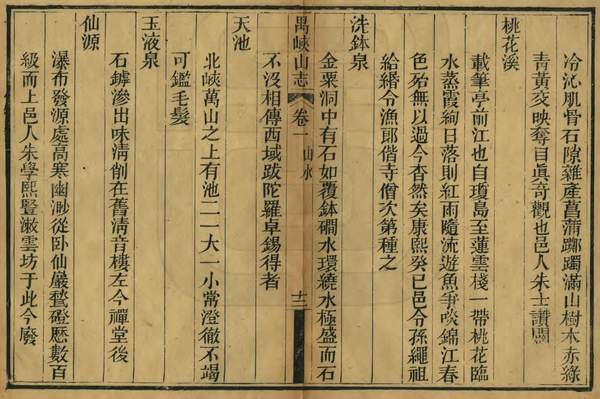 冷沁肌骨石隙雜產菖蒲躑躅滿山樹木赤綠
青黃交映奪目眞奇觀也邑人朱士讚闢
桃花溪
載筆亭前江也自瓊島至蓮雲棧一帶桃花臨
水蒸霞絢日落則紅雨隨流遊魚爭啖錦江春
色殆無以過今杳然矣康熙癸巳邑令孫繩祖
給緡令漁郎偕寺僧次第種之
洗鉢泉
金粟洞中有石如覆鉢磵水環繞水極盛而石
禺峽山志
卷一
山水
十三
不沒相傳西域跋陀羅卓錫得者
天池
北峽萬山之上有池二一大一小常澄徹不竭
可鑑毛髮
玉液泉
石罅滲出味淸削在舊淸音樓左今禪堂後
仙源
瀑布發源處高寒幽渺從卧仙巖甃磴歷數百
級而上邑人朱學熙豎漱雲坊于此今廢